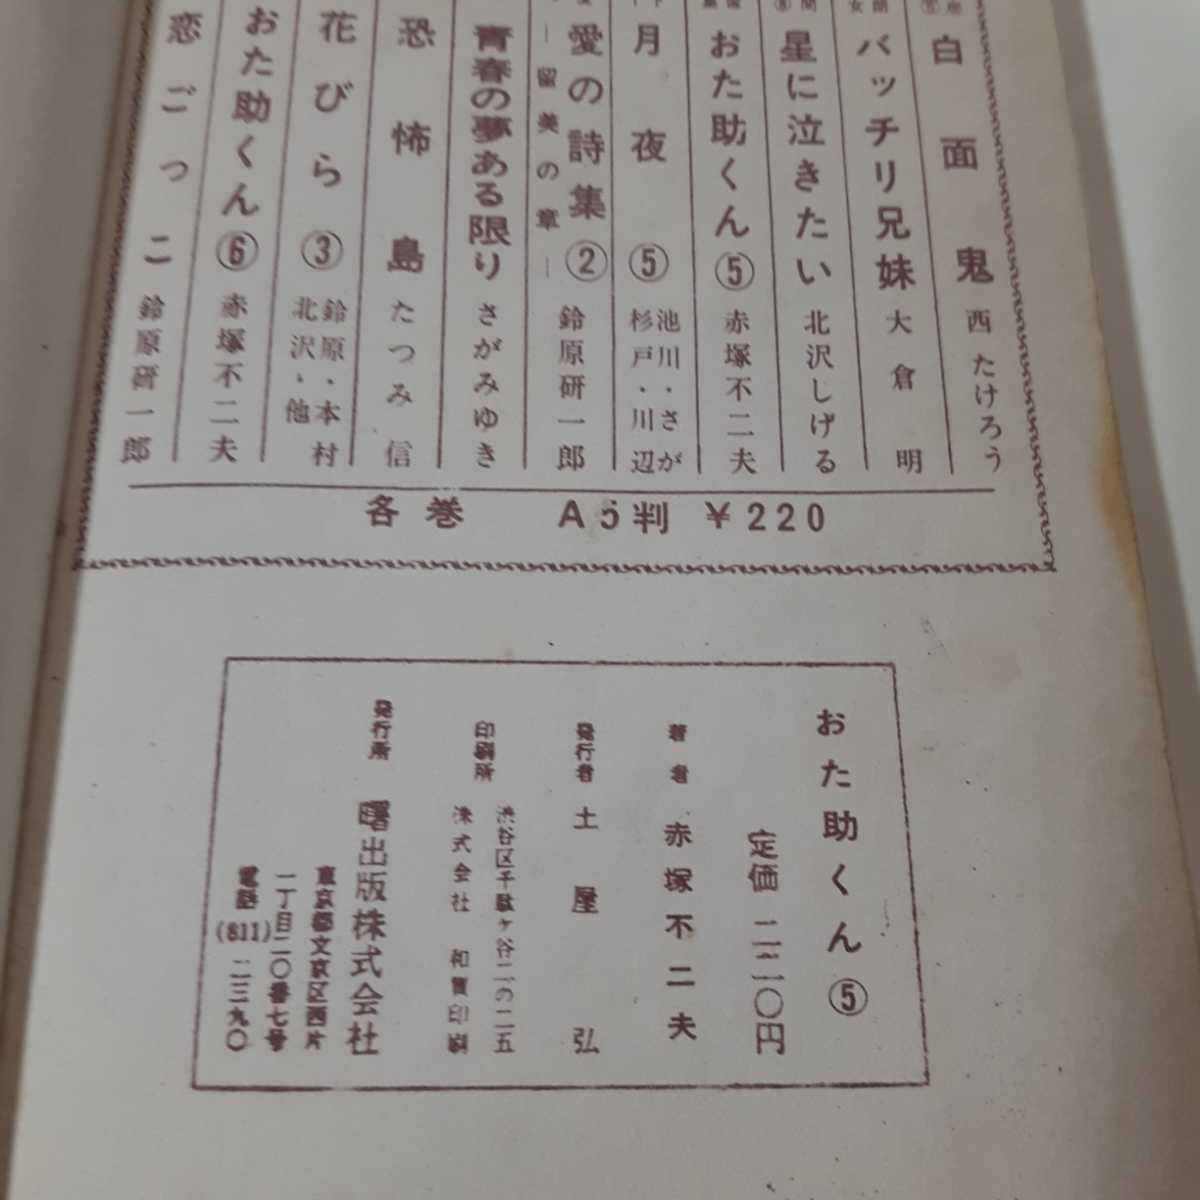 白面鬼 西たけろう
バッチリ兄妹 大倉明
星に泣きたい 北沢しげる
おた助くん⑤ 赤塚不二夫
月夜⑤ 池川・さが
杉戸・川辺
愛の詩集② 鈴原研一郎
―留美の章―
青春の夢ある限り さがみゆき
恐怖島 たつみ信
花びら③ 鈴原・本村
北沢・他
おた助くん⑥ 赤塚不二夫
恋ごっこ 鈴原研一郎
各巻 A5判 ¥220
おた助くん⑤
定価 二二〇円
著者 赤塚不二夫
発行者 土屋弘
印刷所 渋谷区千駄ヶ谷二の二五
株式会社 和貫印刷
発行所 曙出版株式会社
東京都文京区西片
一丁目二〇番七号
電話(811)二三九〇